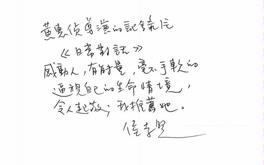 黃惠偵導演的記錄片
《日常對話》
感動人,有力量,毫不手軟的
逼視自己的生命情境,
令人起敬;我推薦她。
侯孝賢